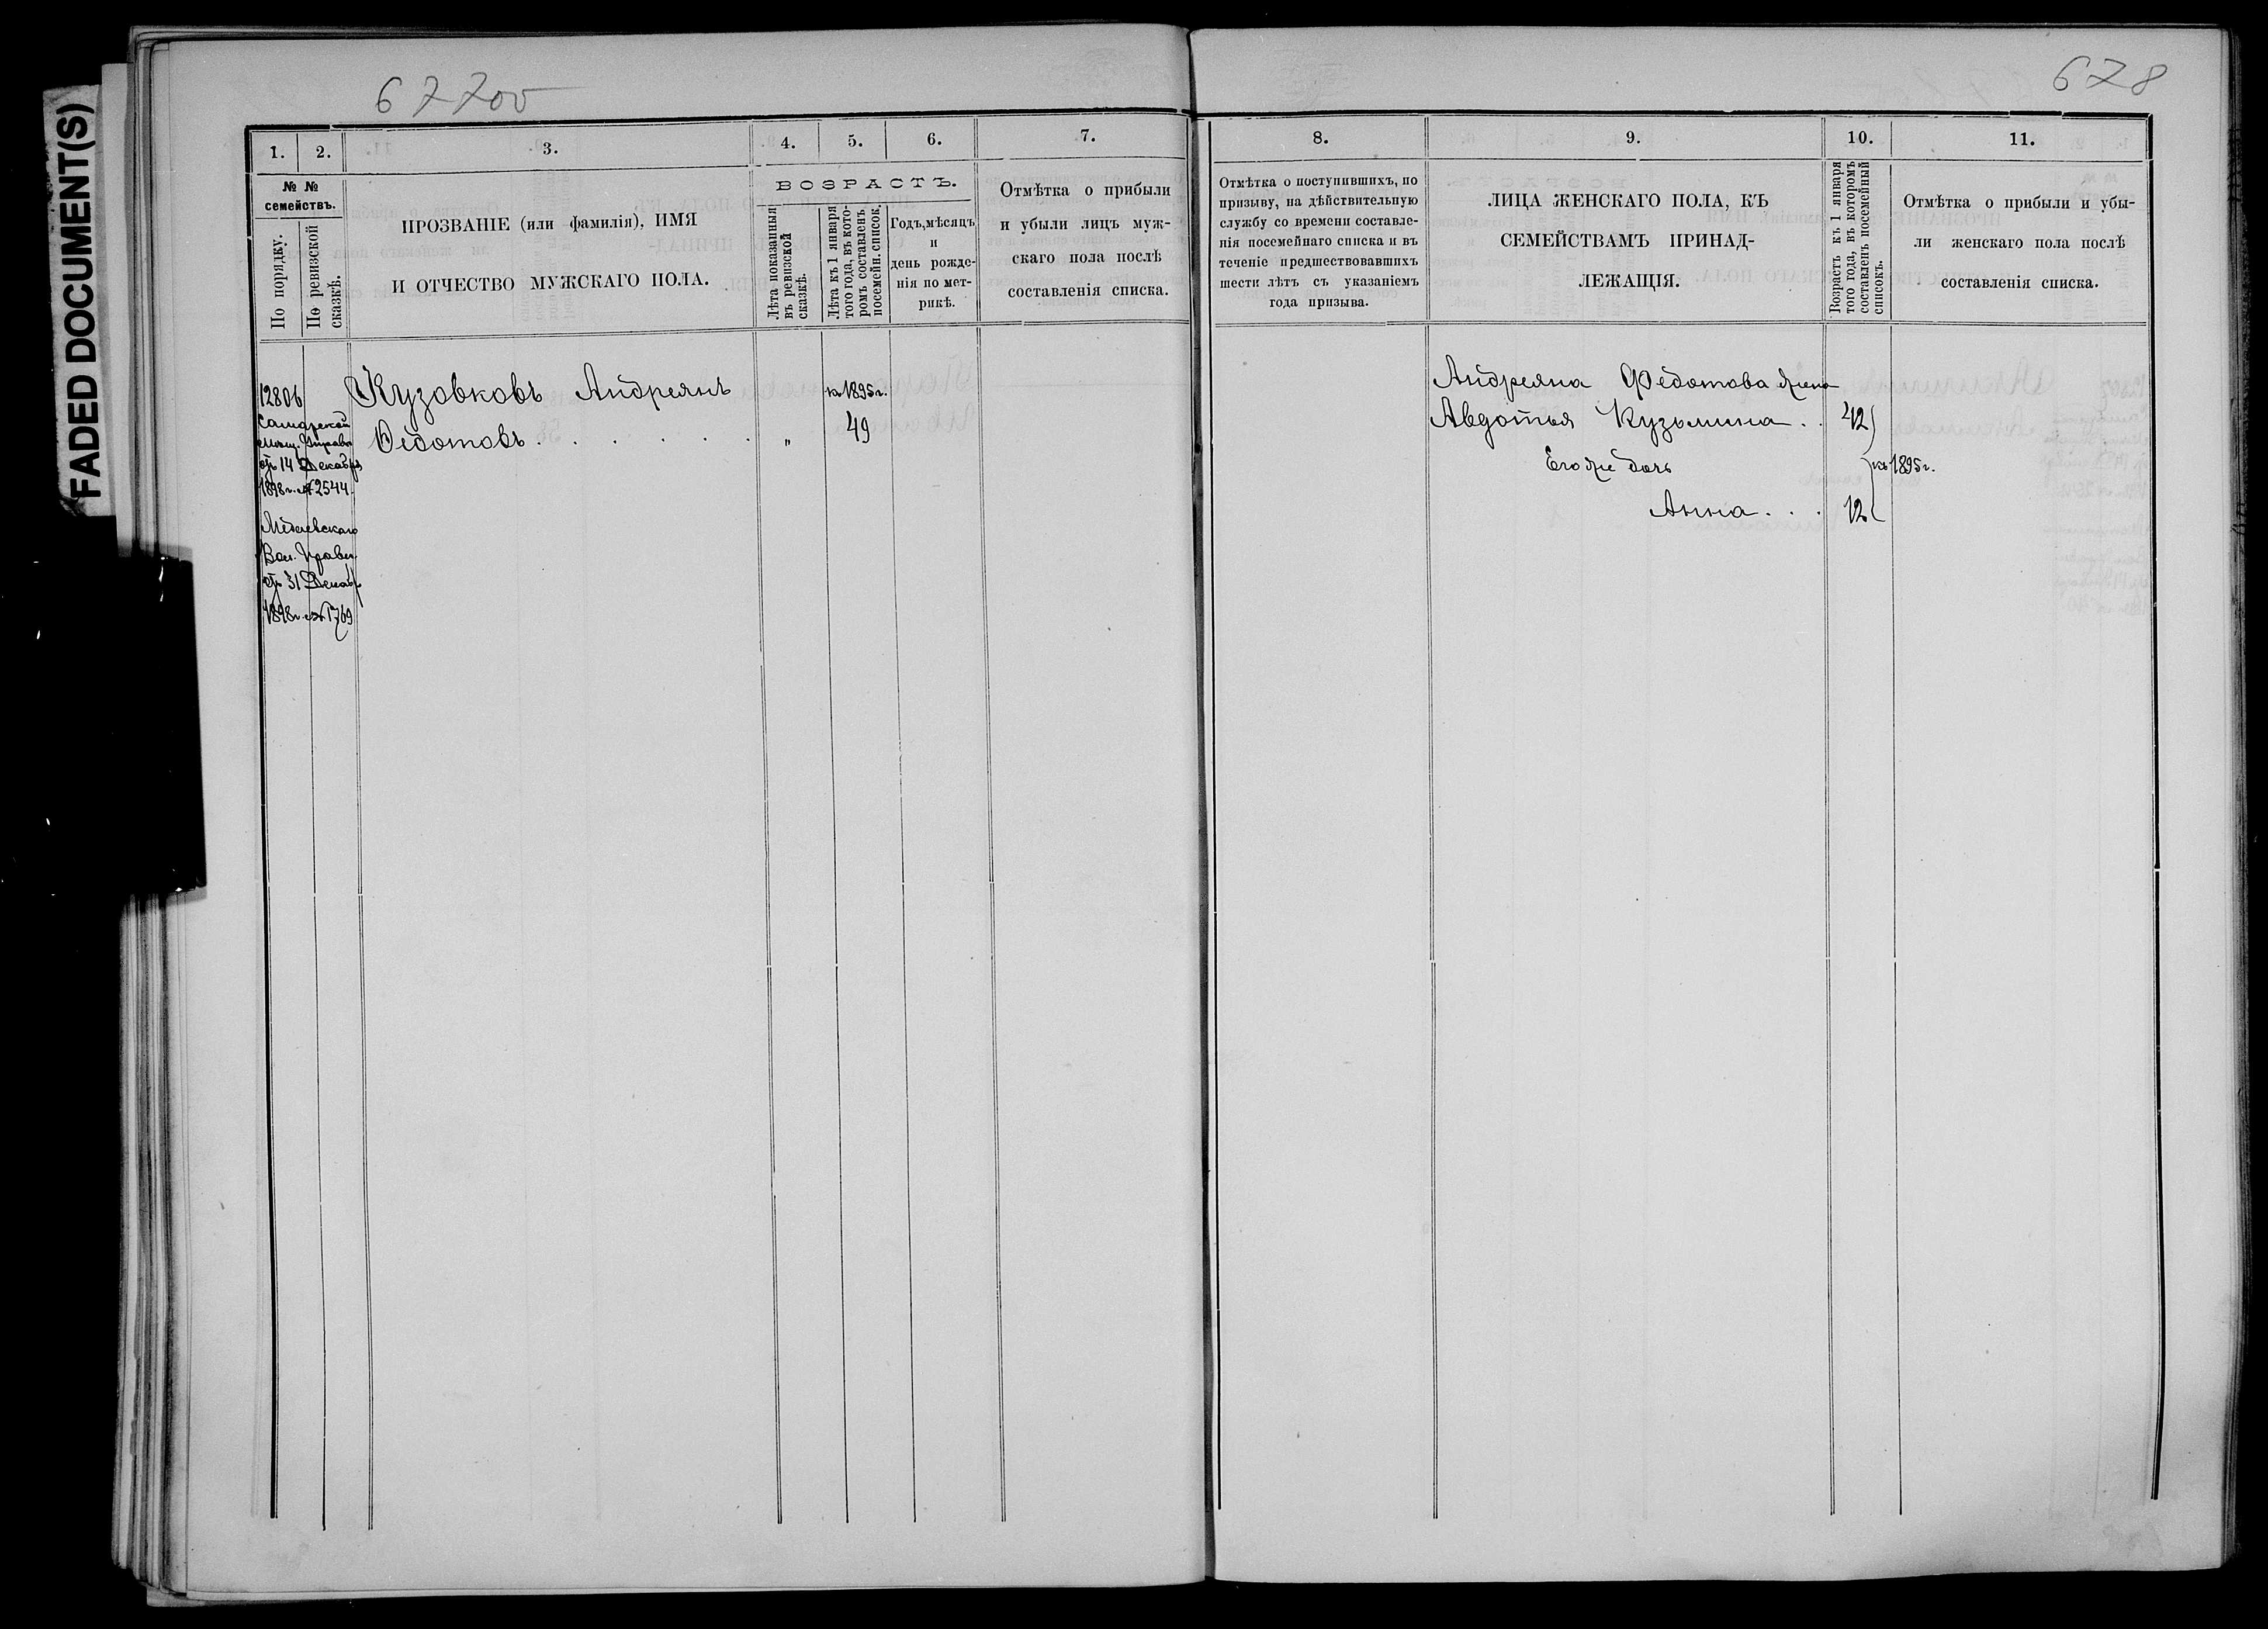 FADED DOCUMENT(S)
67700
678
1. 2. 3. 4. 5. 6. 7.
№ №
семействъ.
По порядку.
По ревизской
сказкѣ.
ПРОЗВАНІЕ (или фамилія), ИМЯ
И ОТЧЕСТВО МУЖСКАГО ПОЛА.
ВОЗРАСТЪ.
Лѣта показанныя
въ ревизской
сказкѣ.
Лѣта къ 1 января
того года, въ кото-
ромъ составленъ
посемейн. список.
Годъ, мѣсяцъ
и
день рожде-
нія по мет-
рикѣ.
Отмѣтка о прибыли
и убыли лицъ муж-
скаго пола послѣ
составленія списка.
12806
Самарской
мѣщ. Управы
отъ 14 Декабря
1898 г. № 2544.
Вол. Правл.
отъ 31 Декабр
1898 г. № 1769
Кузовковъ Андреянъ
Ѳедотовъ . . . . . . „ 49
къ 1895 г.
8. 9. 10. 11.
Отмѣтка о поступившихъ, по
призыву, на дѣйствительную
службу со времени составле-
нія посемейнаго списка и въ
теченіе предшествовавшихъ
шести лѣтъ съ указаніемъ
года призыва.
ЛИЦА ЖЕНСКАГО ПОЛА, КЪ
СЕМЕЙСТВАМЪ ПРИНАД-
ЛЕЖАЩІЯ.
Возрастъ къ 1 января
того года, въ которомъ
составленъ посемейный
списокъ.
Отмѣтка о прибыли и убы-
ли женскаго пола послѣ
составленія списка.
Андреяна Федотова жена
Авдотья Кузьмина . . 42
Его же дочь
къ 1895 г.
Анна . . . 12